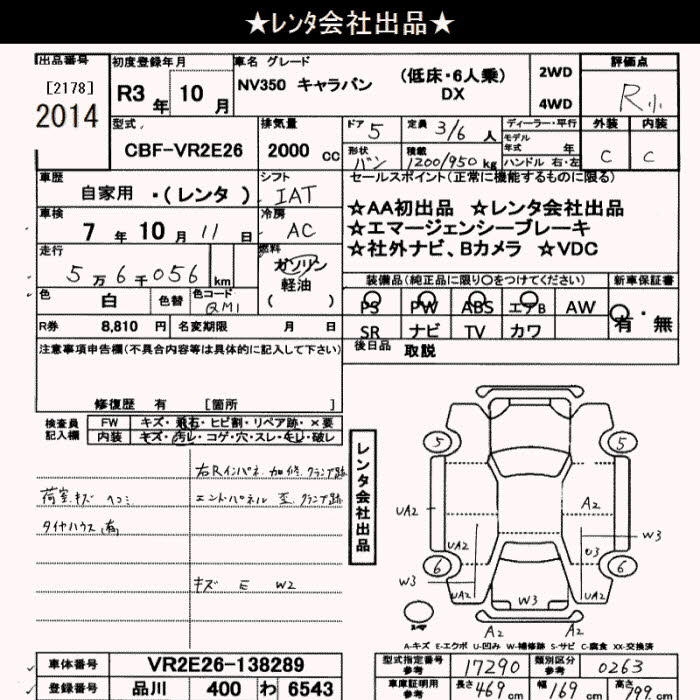 ★レンタ会社出品★
出品番号 初度登録年月 車名 グレード 評価点
[2178] R3年 10月 NV350 キャラバン (低床・6人乗) DX 2WD 4WD R小
2014
型式 排気量 ドア 5 定員 3/6 人 ディーラー・平行 外装 内装
CBF-VR2E26 2000 cc 形状 バン 積載 1200/950 kg モデル年式 年 ハンドル 右・左 C C
車歴 シフト セールスポイント(正常に機能するものに限る)
自家用 ・(レンタ) IAT
車検 冷房 ☆AA初出品 ☆レンタ会社出品
7年 10月 11日 AC ☆エマージェンシーブレーキ
走行 燃料 ☆社外ナビ、Bカメラ ☆VDC
5万6千056 km ガソリン 軽油 ( )
色 白 色替 色コード QM1
装備品(純正品に限り○をつけてください) 新車保証書
PS PW ABS エアB AW 有・無
SR ナビ TV カワ
R券 8,810 円 名変期限 月 日
後日品 取説
注意事項申告欄(不具合内容等は具体的に記入して下さい)
修復歴 有 [箇所 ]
検査員記入欄 FW キズ・飛石・ヒビ割・リペア跡・×要
内装 キズ・汚レ・コゲ・穴・スレ・キレ・破レ
右Rインパネ 加修 クランプ跡
荷室 キズ ヘコミ エンドパネル 歪 クランプ跡
タイヤハウス 有
キズ E W2
レンタ会社出品
5 5
UA2 A2
UA2 U3 W3
6 6
W3 UA2 W3 UA2
A2 A2
A-キズ E-エクボ U-凹み W-補修跡 S-サビ C-腐食 XX-交換済
車体番号 VR2E26-138289 型式指定番号 参考 17290 類別区分 参考 0263
登録番号 品川 400 わ 6543 車庫証明用 参考 長さ 469 cm 幅 169 cm 高さ 199 cm